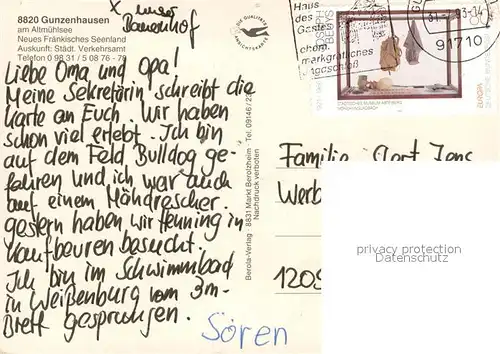 x unser
Bauernhof
8820 Gunzenhausen
am Altmühlsee
Neues Fränkisches Seenland
Auskunft: Städt. Verkehrsamt
Telefon 0 98 31 / 5 08 76 - 78
Liebe Oma und Opa!
Meine Sekretärin schreibt die
Karte an Euch. Wir haben
schon viel erlebt. Ich bin
auf dem Feld Bulldog ge-
fahren und ich war auch
auf einem Mähdrescher.
gestern haben wir Henning in
Kaufbeuren besucht.
Ich bin im Schwimmbad
in Weißenburg vom 3m-
Brett gesprungen.
Sören
Berola-Verlag 8831 Markt Berolzheim · Tel. 09146/2
Nachdruck verboten
DIE QUALITÄTS
Haus
des
Gastes
ehem.
markgräfliches
Jagdschloß
JOSEPH BEUYS
EUROPA
-93-14
91710
Familie Gert Jens
Werb
1209
privacy protection
Datenschutz